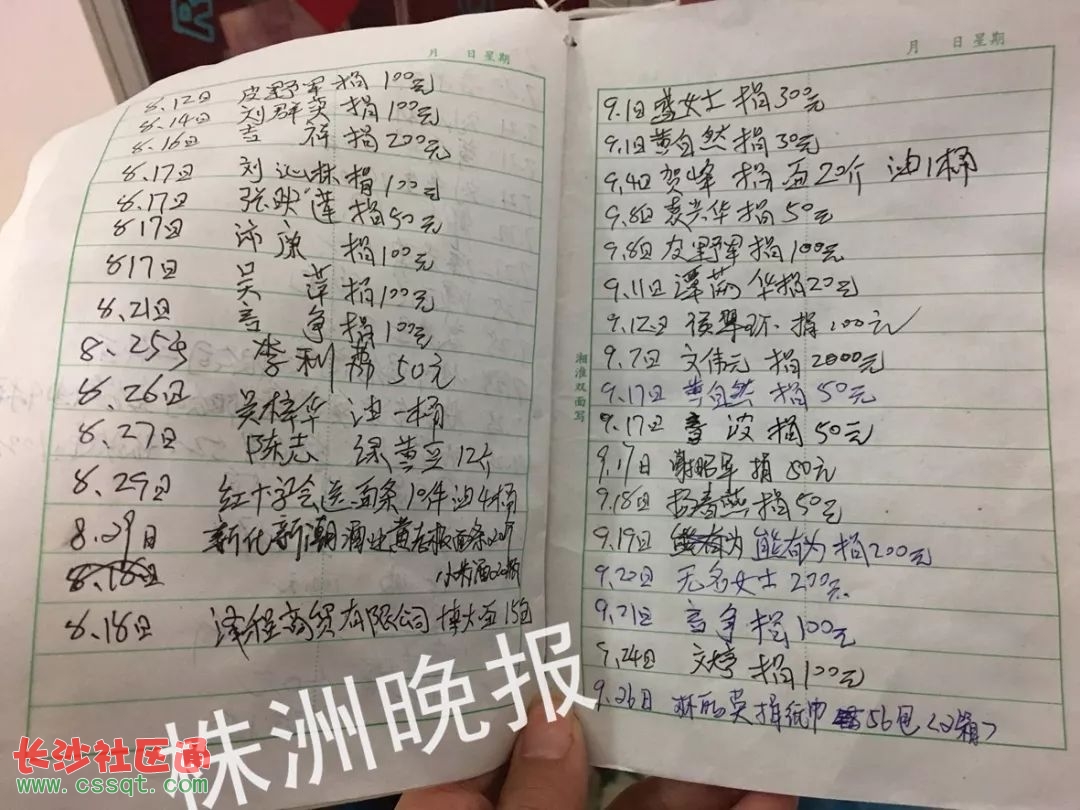 月 日 星期
8.12日 皮野军 捐 100元
8.14日 刘群英 捐 100元
8.16日 言 祥 捐 200元
8.17日 刘 林 捐 100元
8.17日 张映莲 捐50元
8.17日 康 捐100元
8.17日 吴 萍 捐100元
8.21日 言 争 捐 100元
8.25号 李利 50元
8.26日 吴梓华 油一桶
8.27日 陈志 绿黄豆12个
8.29日 红十字会送面条10件油4桶
8.29日 新化新潮酒业黄老板面条
8.18日 小米酒
8.18日 泽程商贸有限公司 博大面15包
月 日 星期
9.1日 女士 捐 300元
9.1日 黄自然 捐 30元
9.4日 贺峰 捐 面20个 油1桶
9.8日 袁兴华 捐 50元
9.8日 皮野军 捐100元
9.11日 谭 华捐20元
9.12日 捐 200元
9.7日 文伟元 捐 2000元
9.17日 黄自然 捐 50元
9.17日 波 捐 50元
9.17日 谢昭军 捐 50元
9.18日 杨春燕 捐 50元
9.19日 熊有为 捐200元
9.20日 无名女士 200元
9.21日 言争 捐 100元
9.24日 文婷 捐 100元
9.26日 英 捐纸巾 56包 (2箱)
湘淮双面写
株洲晚报
长沙社区通
www.cssqt.com